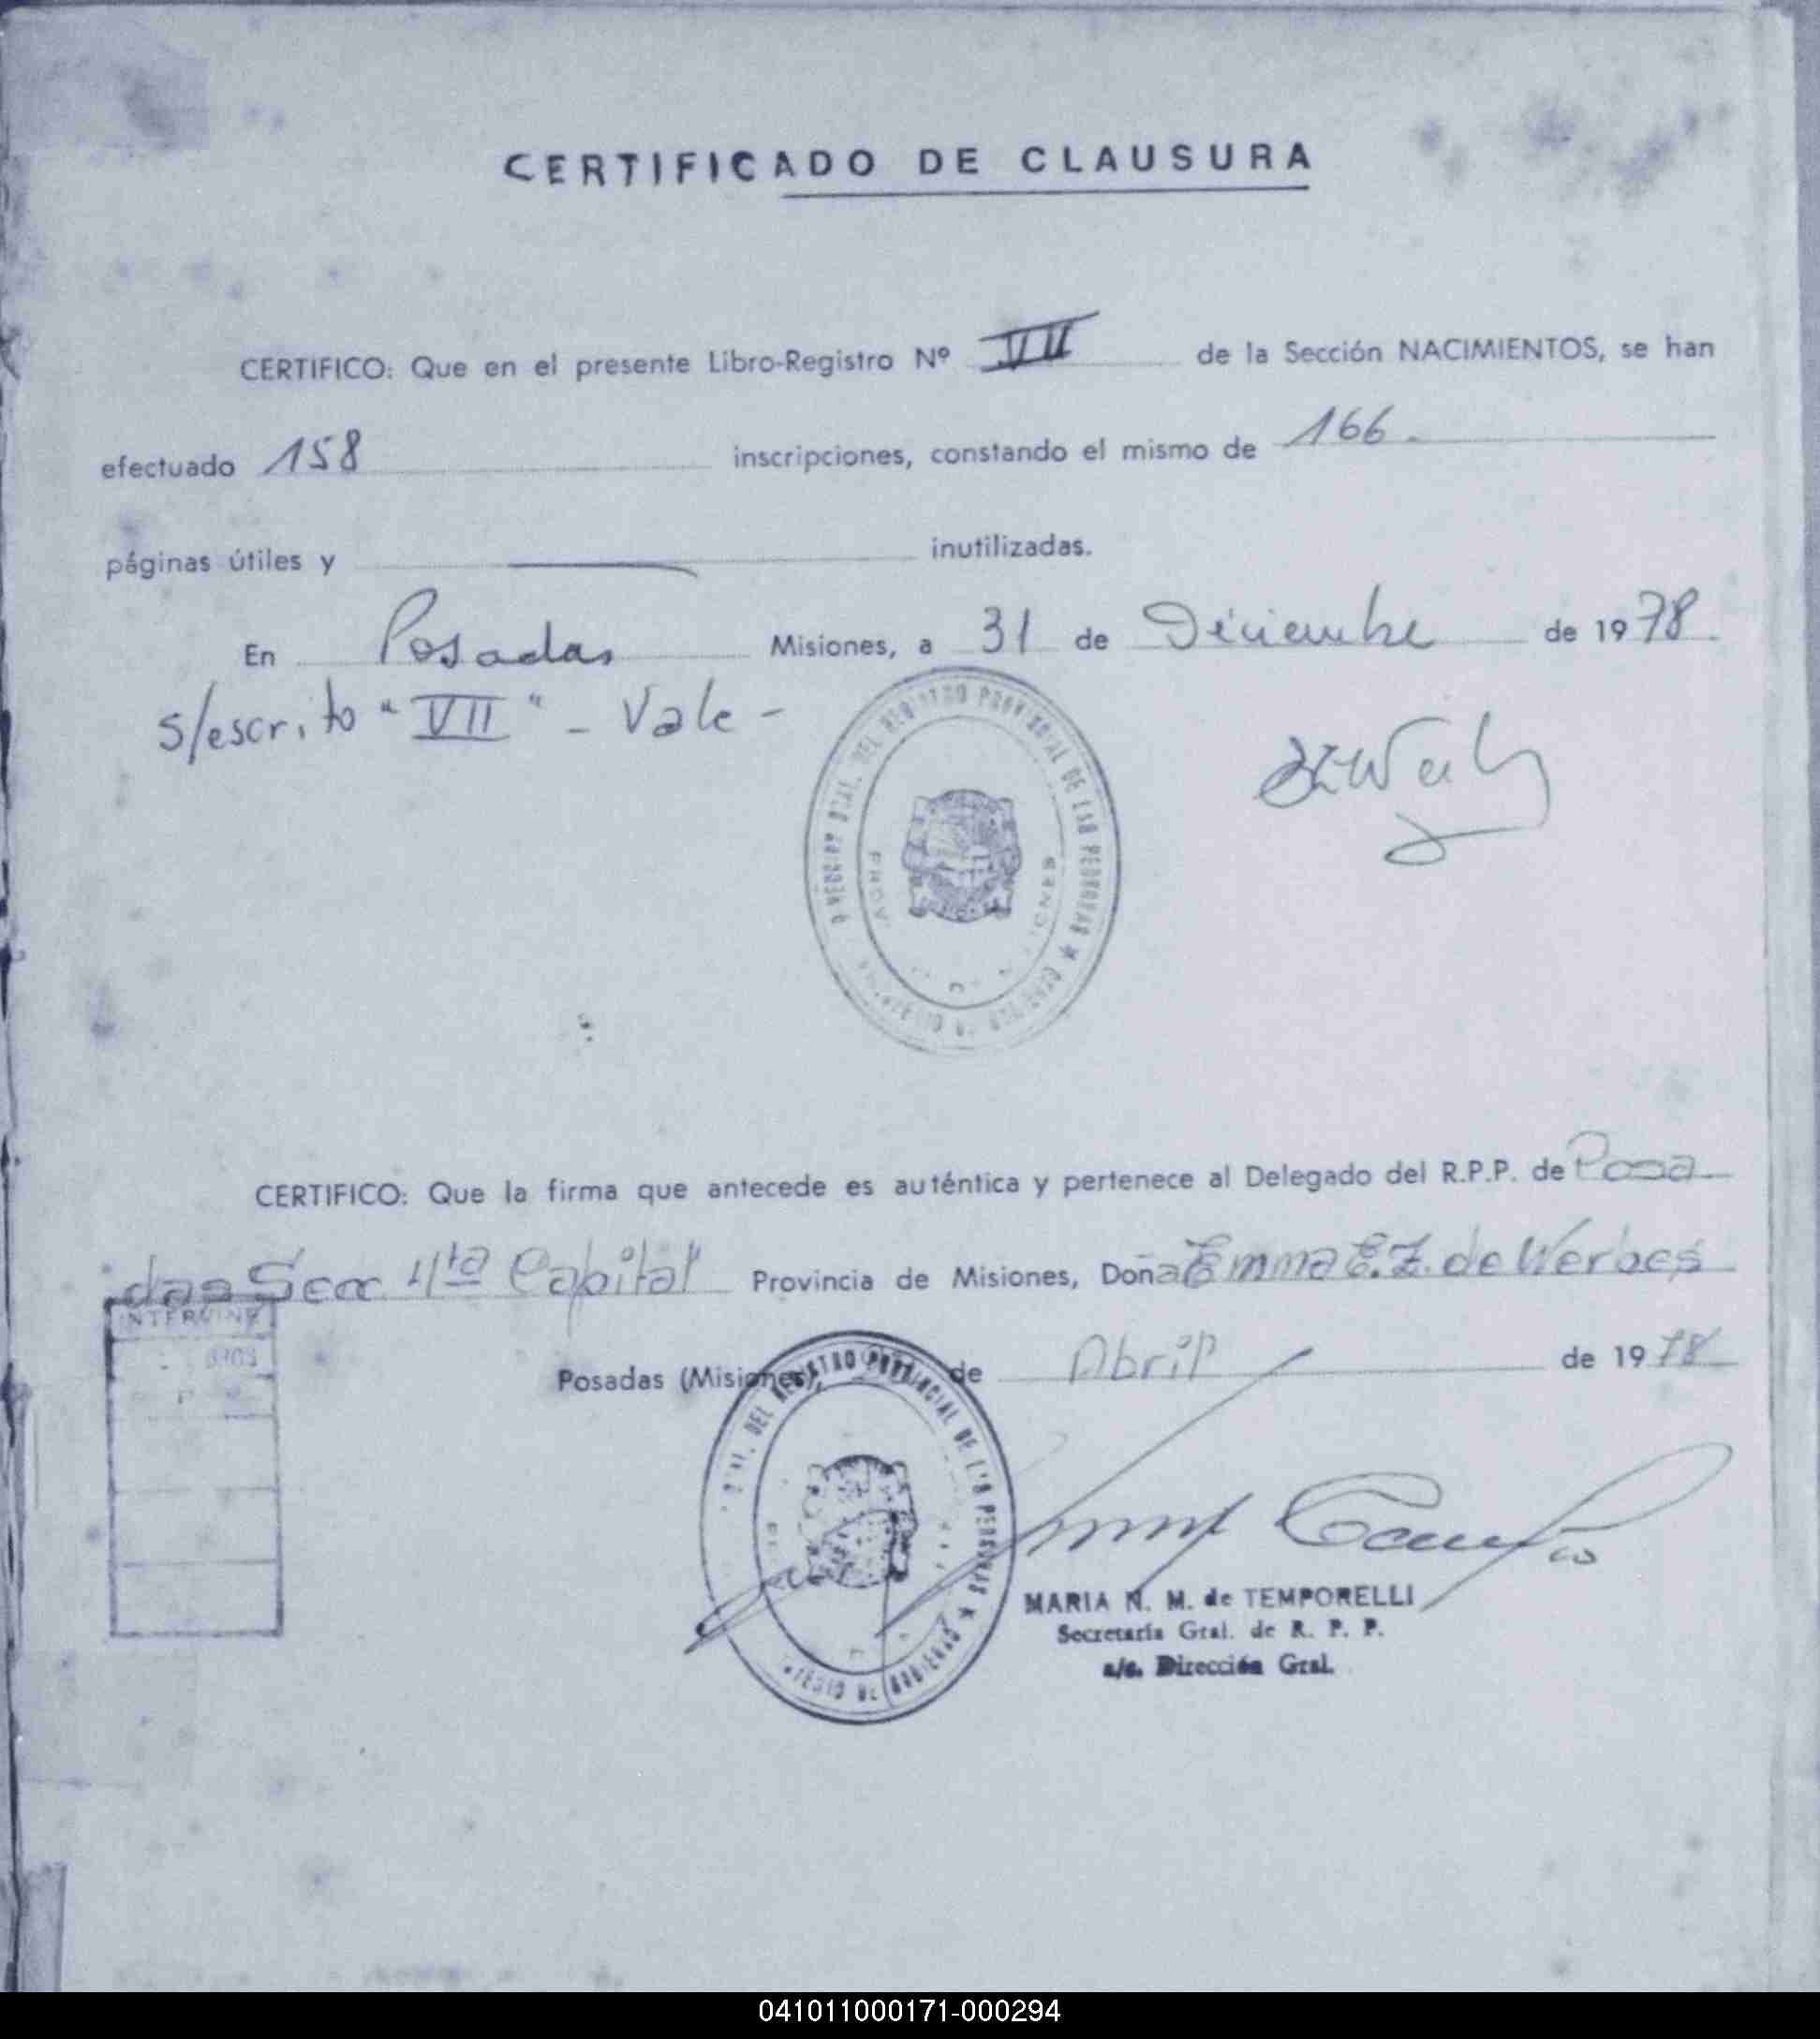 CERTIFICADO DE CLAUSURA
CERTIFICO: Que en el presente Libro-Registro Nº VII de la Sección NACIMIENTOS, se han
efectuado 158 inscripciones, constando el mismo de 166.
páginas útiles y — inutilizadas.
En Posadas Misiones, a 31 de Diciembre de 1978.
s/escrito "VII" - Vale -
REGISTRO PROVINCIAL DE LAS PERSONAS
CERTIFICO: Que la firma que antecede es auténtica y pertenece al Delegado del R.P.P. de Posa
das Secc 4ta Capital Provincia de Misiones, Doña Emma E. Z. de Werbes
INTERVINO
Posadas (Misiones), de Abril de 1978
DEL REGISTRO PROVINCIAL DE LAS PERSONAS
MARIA N. M. de TEMPORELLI
Secretaría Gral. de R. P. P.
a/c. Dirección Gral.
041011000171-000294